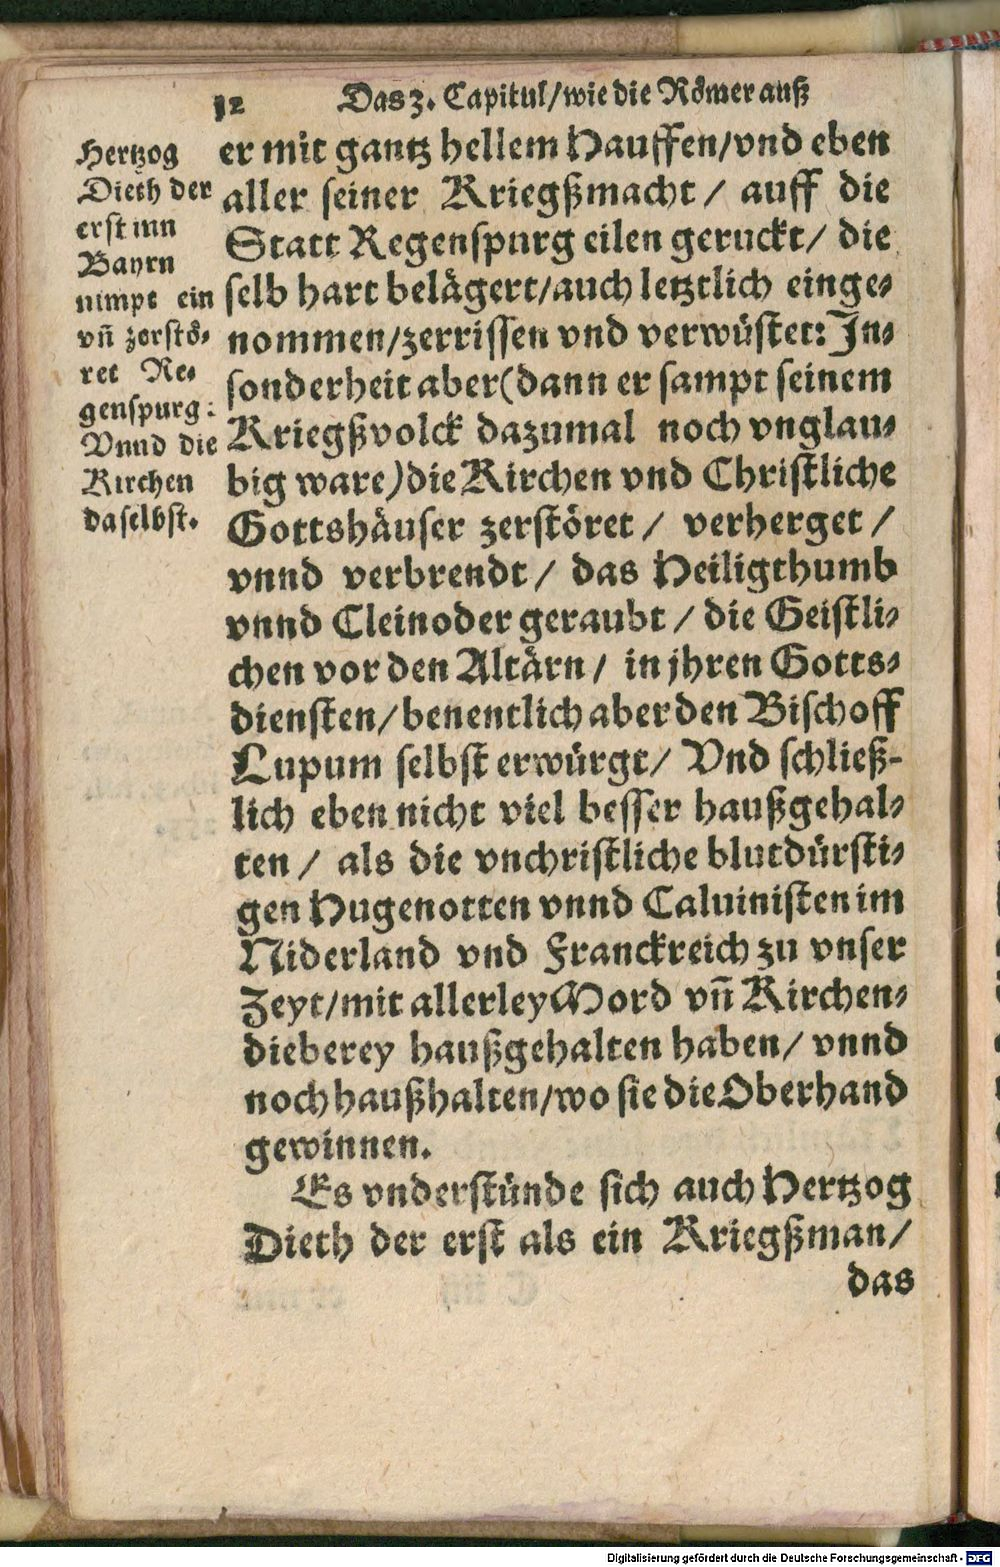 12 Das 3. Capitul/wie die Römer auß
Hertzog
Dieth der
erst inn
Bayrn
nimpt ein
vñ zerstö⸗
ret Re⸗
genspurg:
Vnnd die
Kirchen
daselbst.
er mit gantz hellem Hauffen/vnd eben
aller seiner Kriegßmacht / auff die
Statt Regenspurg eilen geruckt/ die
selb hart belägert/auch letztlich einge⸗
nommen/zerrissen vnd verwüstet: In⸗
sonderheit aber(dann er sampt seinem
Kriegßvolck dazumal noch vnglau⸗
big ware)die Kirchen vnd Christliche
Gottshäuser zerstöret / verherget /
vnnd verbrendt / das Heiligthumb
vnnd Cleinoder geraubt / die Geistli⸗
chen vor den Altärn / in jhren Gotts⸗
diensten/benentlich aber den Bischoff
Lupum selbst erwürgt/ Vnd schließ-
lich eben nicht viel besser haußgehal⸗
ten / als die vnchristliche blutdürsti⸗
gen Hugenotten vnnd Caluinisten im
Niderland vnd Franckreich zu vnser
Zeyt/mit allerley Mord vñ Kirchen⸗
dieberey haußgehalten haben/ vnnd
noch haußhalten/wo sie die Oberhand
gewinnen.
Es vnderstünde sich auch Hertzog
Dieth der erst als ein Kriegßman/
das
Digitalisierung gefördert durch die Deutsche Forschungsgemeinschaft - DFG